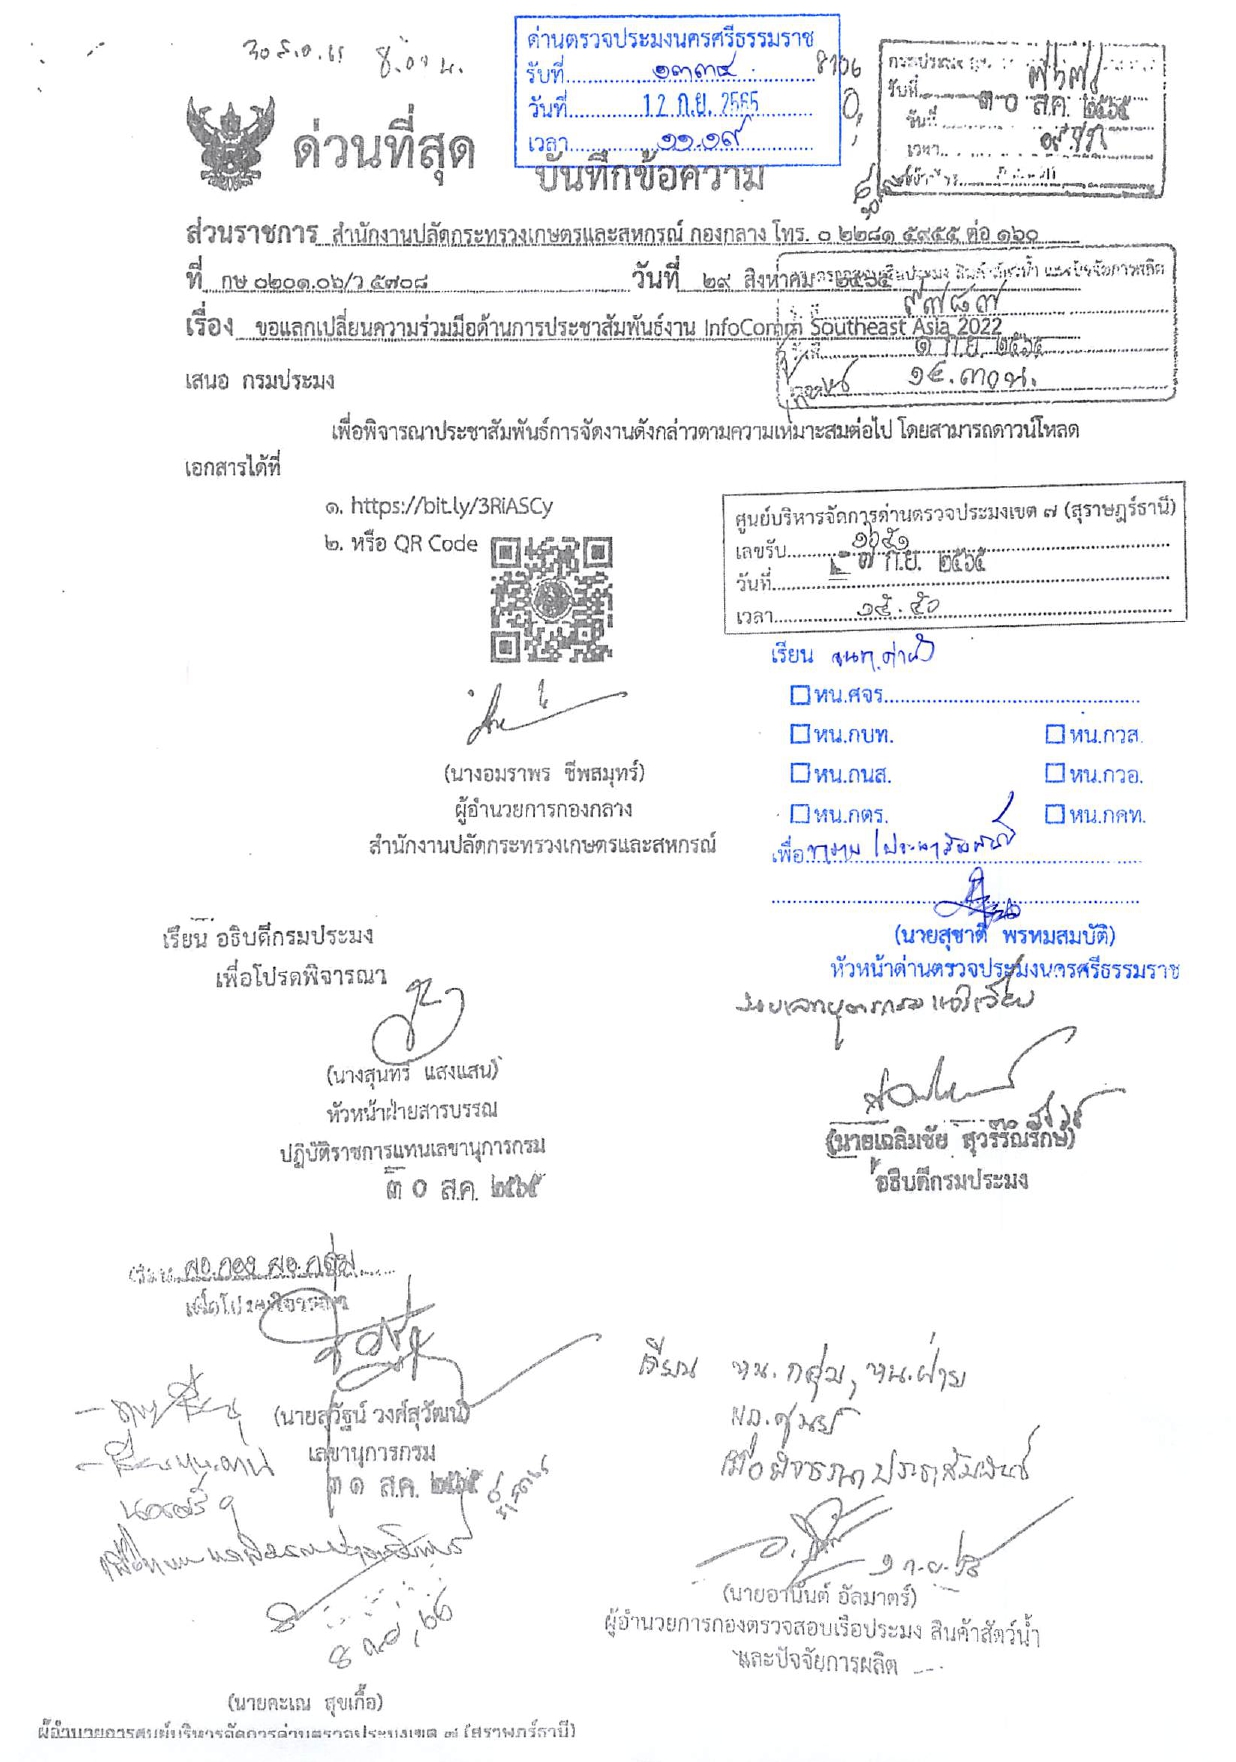 ๓๐ ส.ค. ๖๕
ด่านตรวจประมงนครศรีธรรมราช
รับที่ ๑๓๓๔
วันที่ 12 ก.ย. 2565
เวลา ๑๑.๑๙
8106
รับที่
วันที่ ๓๐ ส.ค. ๒๕๖๕
เวลา
ด่วนที่สุด
บันทึกข้อความ
ส่วนราชการ สำนักงานปลัดกระทรวงเกษตรและสหกรณ์ กองกลาง โทร. ๐ ๒๒๘๑ ๕๙๕๕ ต่อ ๑๖๐
ที่ กษ ๐๒๐๑.๐๖/ว ๕๗๐๘ วันที่ ๒๙ สิงหาคม ๒๕๖๕
เรื่อง ขอแลกเปลี่ยนความร่วมมือด้านการประชาสัมพันธ์งาน InfoComm Southeast Asia 2022
วันที่ ๑ ก.ย. ๒๕๖๕
๑๔.๓๐น.
เสนอ กรมประมง
เพื่อพิจารณาประชาสัมพันธ์การจัดงานดังกล่าวตามความเหมาะสมต่อไป โดยสามารถดาวน์โหลด
เอกสารได้ที่
๑. https://bit.ly/3RiASCy
๒. หรือ QR Code
ศูนย์บริหารจัดการด่านตรวจประมงเขต ๗ (สุราษฎร์ธานี)
เลขรับ ๑๖๕๑
วันที่ ๗ ก.ย. ๒๕๖๕
เวลา ๑๕.๕๐
เรียน
หน.ศจร.
หน.กบท. หน.กวส.
หน.ถนส. หน.กวอ.
หน.กตร. หน.กคท.
เพื่อ ทราบ / ประชาสัมพันธ์
(นายสุชาติ พรหมสมบัติ)
หัวหน้าด่านตรวจประมงนครศรีธรรมราช
(นางอมราพร ชีพสมุทร์)
ผู้อำนวยการกองกลาง
สำนักงานปลัดกระทรวงเกษตรและสหกรณ์
เรียน อธิบดีกรมประมง
เพื่อโปรดพิจารณา
(นางสุนทรี แสงแสน)
หัวหน้าฝ่ายสารบรรณ
ปฏิบัติราชการแทนเลขานุการกรม
๓๐ ส.ค. ๒๕๖๕
(นายเฉลิมชัย สุวรรณรักษ์)
อธิบดีกรมประมง
เรียน ผอ.กอง ผอ.กลุ่ม
เพื่อโปรดพิจารณา
(นายสุวัฐน์ วงศ์สุวัฒน์)
เลขานุการกรม
๓๑ ส.ค. ๒๕๖๕
เรียน หน.กลุ่ม, หน.ฝ่าย
ผอ.ศูนย์
เพื่อพิจารณาประชาสัมพันธ์
๑ ก.ย. ๖๕
(นายอานันต์ อัลมาตร์)
ผู้อำนวยการกองตรวจสอบเรือประมง สินค้าสัตว์น้ำ
และปัจจัยการผลิต
(นายคะเณ สุขเกื้อ)
ผู้อำนวยการศูนย์บริหารจัดการด่านตรวจประมงเขต ๗ (สุราษฎร์ธานี)